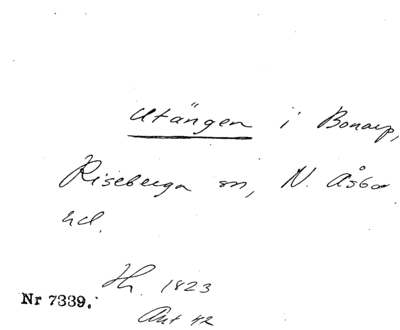 Utängen i Bonarp,
Riseberga sn, N. Åsbo
hd.
Hr. 1823
Nr 7339.
Akt 42